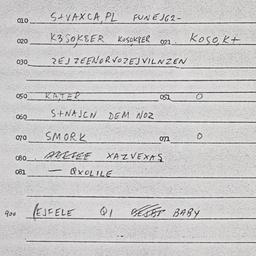 010 S+VAXCA,PL FUNEJG2-
020 K3SOK8ER KOSOK8ER 021. KOSO,K+
030 2EJZEENORVOZEJVILNZEN
050 KATER 051 0
060 S+NAJCN DEM NOZ
070 SMORK 071 0
080 XAZVEXAS
081 — QXOLILE
900 EJFELE QI BABY